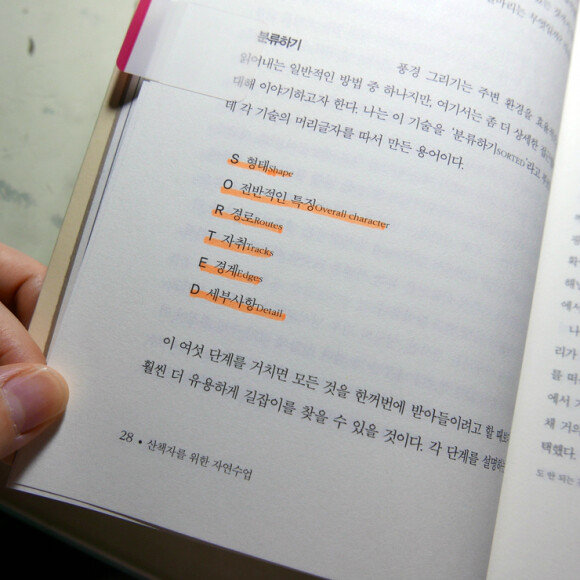 분류하기
풍경 그리기는 주변 환경을
읽어내는 일반적인 방법 중 하나지만, 여기서는 좀 더 상세한
대해 이야기하고자 한다. 나는 이 기술을 '분류하기SORTED'라고
데 각 기술의 머리글자를 따서 만든 용어이다.
S 형태Shape
O 전반적인 특징Overall character
R 경로Routes
T 자취Tracks
E 경계Edges
D 세부사항Detail
이 여섯 단계를 거치면 모든 것을 한꺼번에 받아들이려고 할 때보다
훨씬 더 유용하게 길잡이를 찾을 수 있을 것이다. 각 단계를
28 • 산책자를 위한 자연수업
나
리가
를
에서
채 겨의
택했다.